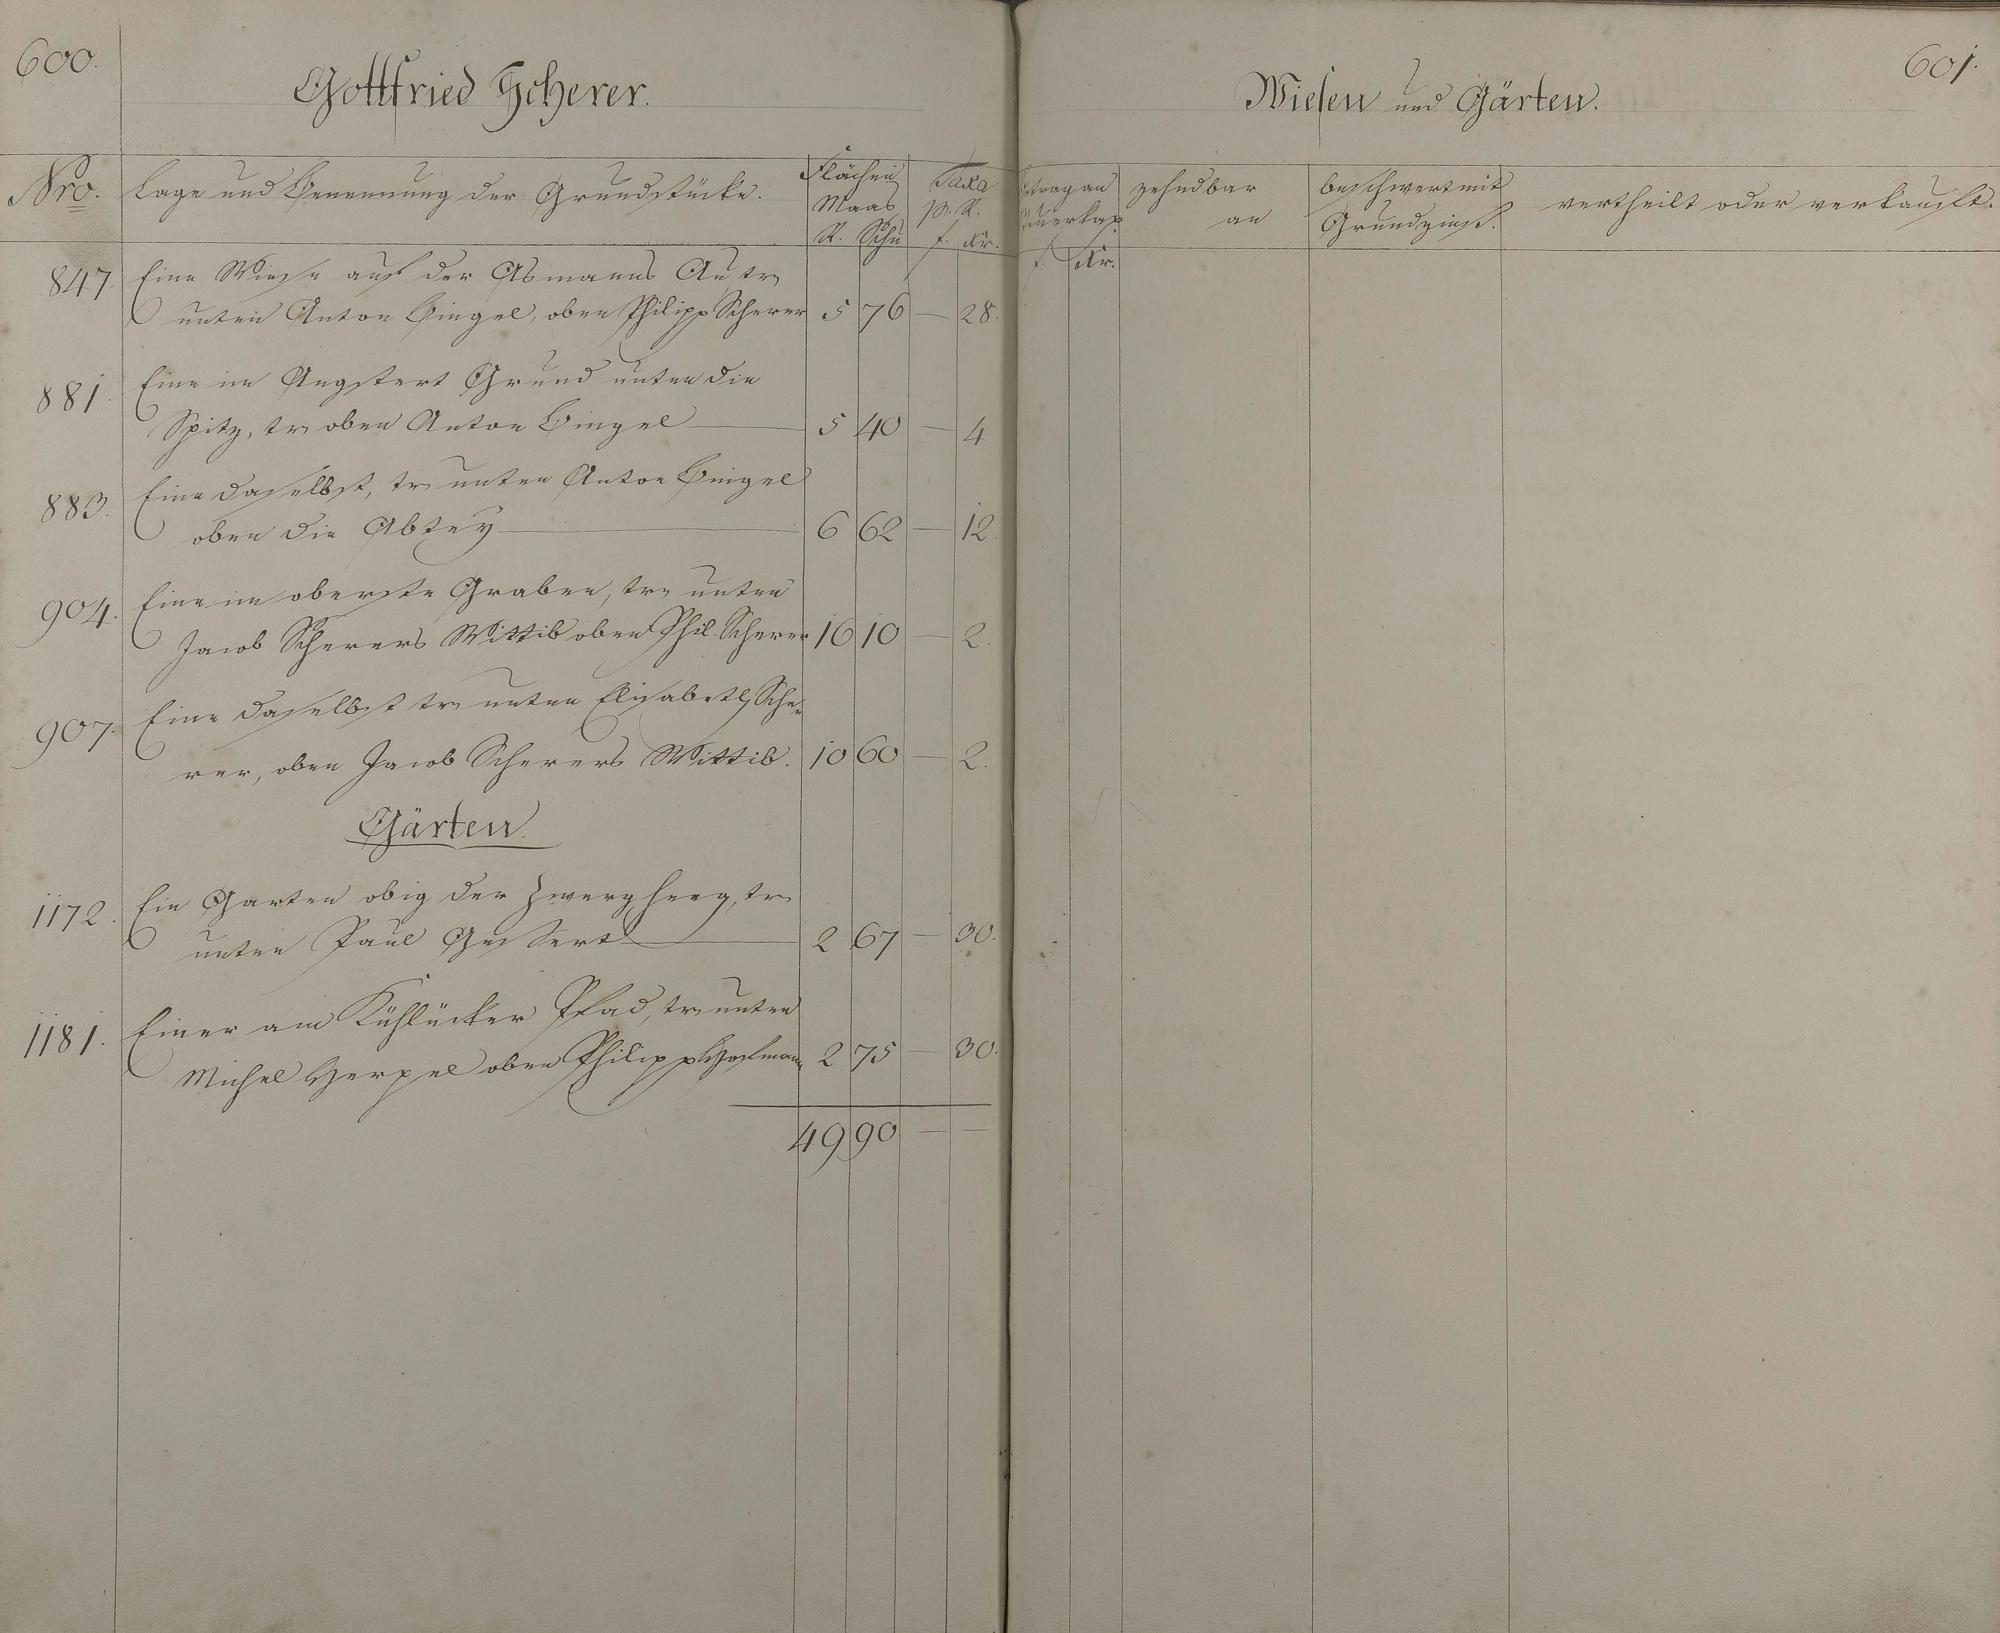 600.
Gottfried Scherer.
Nro. Lage und Benennung der Grundstücke. Flächen Maas R. Schu Taxa p. R. f. Kr.
847. Eine Wiese auf der Asmanns Au, tr.
unten Anton Bingel, oben Philipp Scherer 5 76 — 28.
881. Eine im Angstert Grund unten die
Spitz, tr. oben Anton Bingel 5 40 — 4
883. Eine daselbst, tr. unten Anton Bingel
oben die Abtey 6 62 — 12.
904. Eine im oberste Graben, tr. unten
Jacob Scherers Wittib oben Phil. Scherer 16 10 — 2.
907. Eine daselbst tr. unten Elisabeth Sche=
rer, oben Jacob Scherers Wittib. 10 60 — 2.
Gärten.
1172. Ein Garten obig der Zwerg heeg, tr.
unten Paul 2 67 — 30.
1181. Einer am Kühlücker Pfad, tr. unten
Michel Herpel oben Philipp Hofmann 2 75 — 30.
49 90 — —
601.
Wiesen und Gärten.
trag an
euerkap. f. Kr.
zehndbar
an
beschwert mit
Grundzinß.
vertheilt oder verkauft.